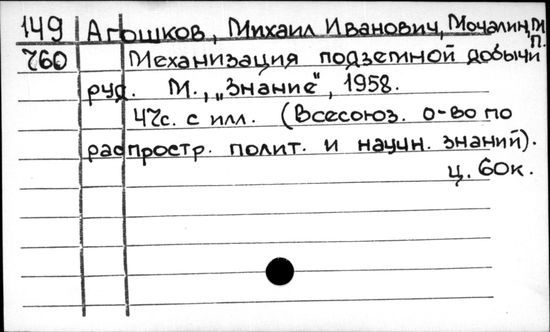 149 Агошков, Михаил Иванович, Мочалин, М.П.
760 Механизация подземной добычи
руд. М., „Знание“, 1958.
47с. с илл. (Всесоюз. о-во по
распростр. полит. и научн. знаний).
ц. 60к.